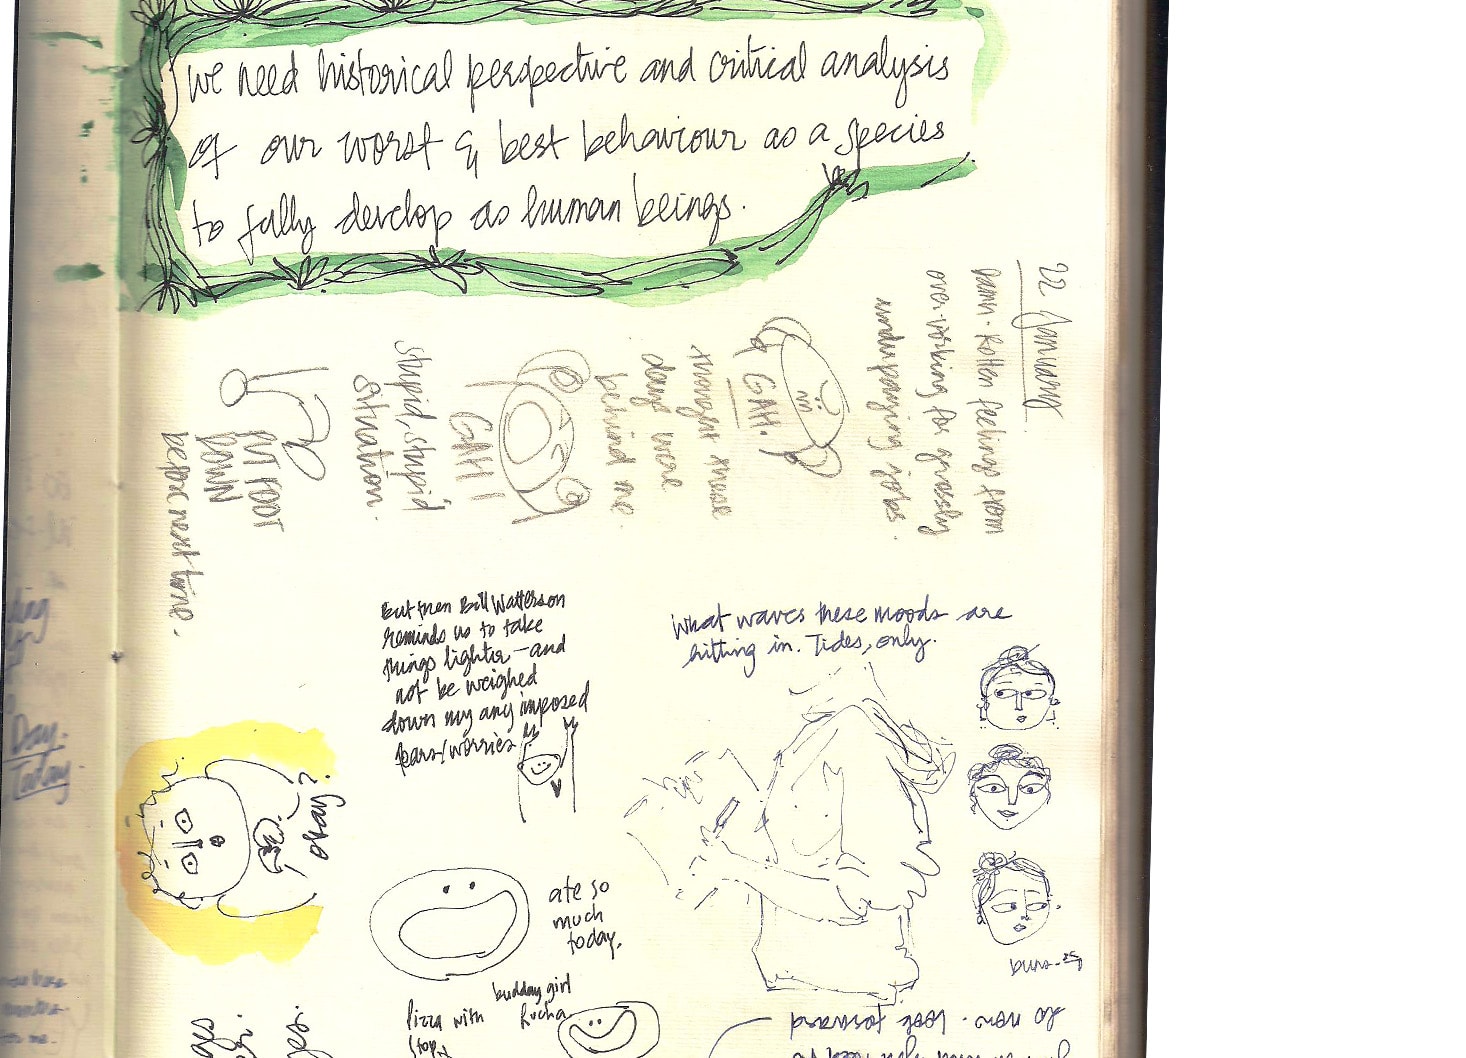 we need historical perspective and critical analysis
of our worst & best behaviour as a species
to fully develop as human beings.
22 January
Damn. Rotten feelings from
over-working for grossly
underpaying jobs.
GAH.
thought these
days were
behind me.
GAH!
stupid, stupid
situation.
PUT FOOT
DOWN
before next time.
But then Bill Watterson
reminds us to take
things lighter — and
not be weighed
down my any imposed
fears/worries
What waves these moods are
hitting in. Tides, only.
okay?
ate so
much
today.
buns
budday girl
Rucha
Pizza with
to now. look forward
Day.
Today.